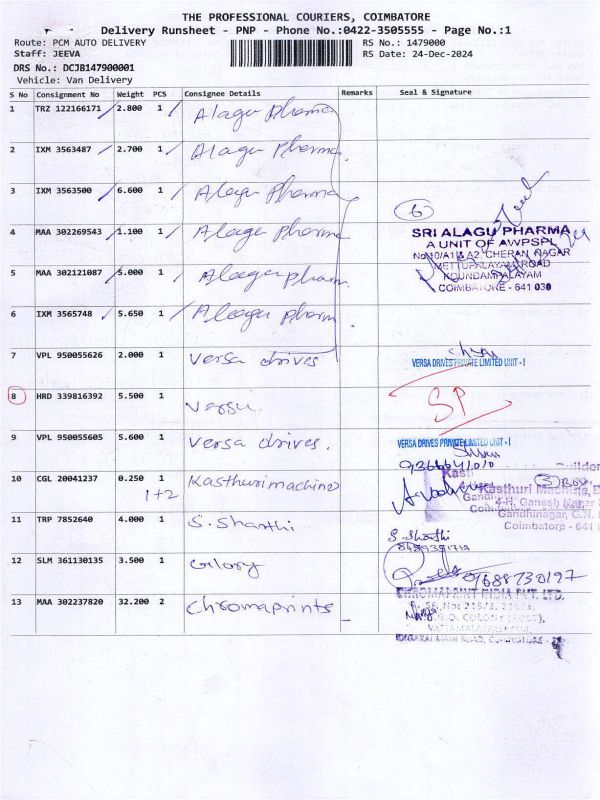 THE PROFESSIONAL COURIERS, COIMBATORE
Delivery Runsheet - PNP - Phone No.:0422-3505555 - Page No.:1
Route: PCM AUTO DELIVERY RS No.: 1479000
Staff: JEEVA RS Date: 24-Dec-2024
DRS No.: DCJB147900001
Vehicle: Van Delivery
S No Consignment No Weight PCS Consignee Details Remarks Seal & Signature
1 TRZ 122166171 2.800 1 Alagu pharma
2 IXM 3563487 2.700 1 Alagu Pharma.
3 IXM 3563500 6.600 1 Alagu Pharma
6
4 MAA 302269543 1.100 1 Alagu Pharma
SRI ALAGU PHARMA
A UNIT OF AWPSPL
No.10/A1 & A2, CHERAN NAGAR
METTUPALAYAM ROAD
KOUNDAMPALAYAM
COIMBATORE - 641 030
5 MAA 302121087 5.000 1 Alaagu pharm
6 IXM 3565748 5.650 1 Alaagu pharm
7 VPL 950055626 2.000 1 Versa drives
VERSA DRIVES PRIVATE LIMITED UNIT - I
8 HRD 339816392 5.500 1 Versa. SP
9 VPL 950055605 5.600 1 Versa drives.
VERSA DRIVES PRIVATE LIMITED UNIT - I
10 CGL 20041237 0.250 1 Kasthurimachine
1+2
3 Box
Kasthuri Machine
4-H, Ganesh Nagar
Gandhinagar, G.N.
Coimbatore - 641
11 TRP 7852640 4.000 1 S. Shanthi
S. Shanthi
12 SLM 361130135 3.500 1 Glory
9688730197
13 MAA 302237820 32.200 2 Chromaprints
CHROMAPRINT INDIA PVT. LTD.